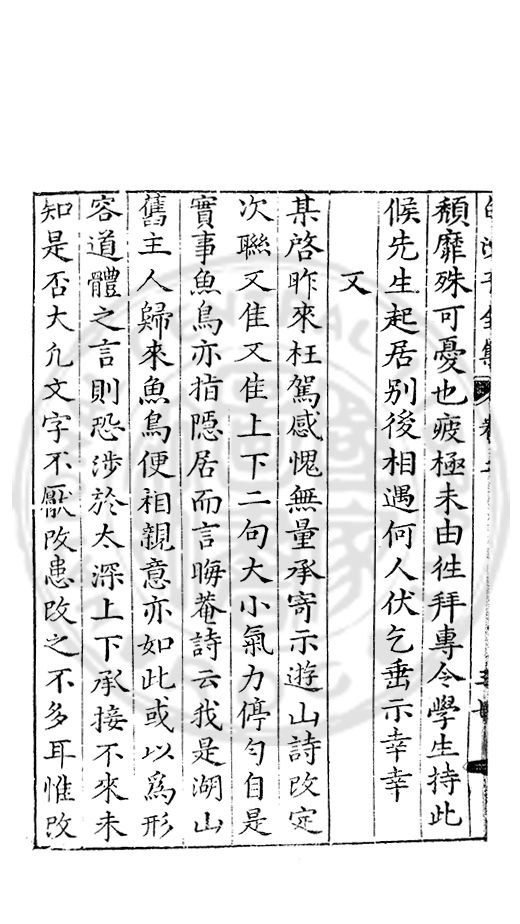 頽靡殊可憂也疲極未由徃拜專令學生持此
候先生起居别後相遇何人伏乞垂示幸幸
又
某啓昨來枉駕感愧無量承寄示遊山詩改定
次聯又佳又佳上下二句大小氣力停匀自是
實事魚鳥亦指隱居而言晦菴詩云我是湖山
舊主人歸來魚鳥便相親意亦如此或以爲形
容道體之言則恐涉於太深上下承接不來未
知是否大凢文字不厭改患改之不多耳惟改